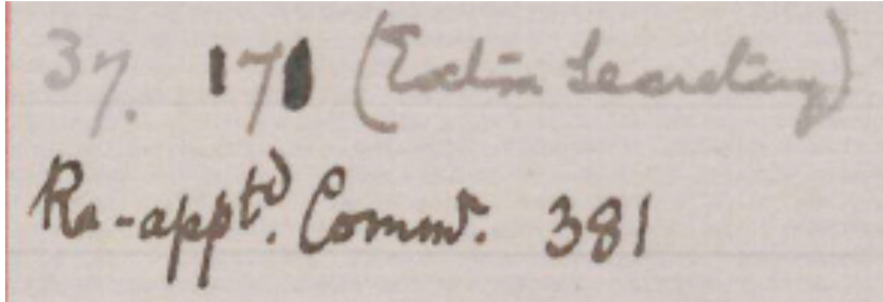 37. 171 (Extim Secretary)
Re-apptd. Commr. 381